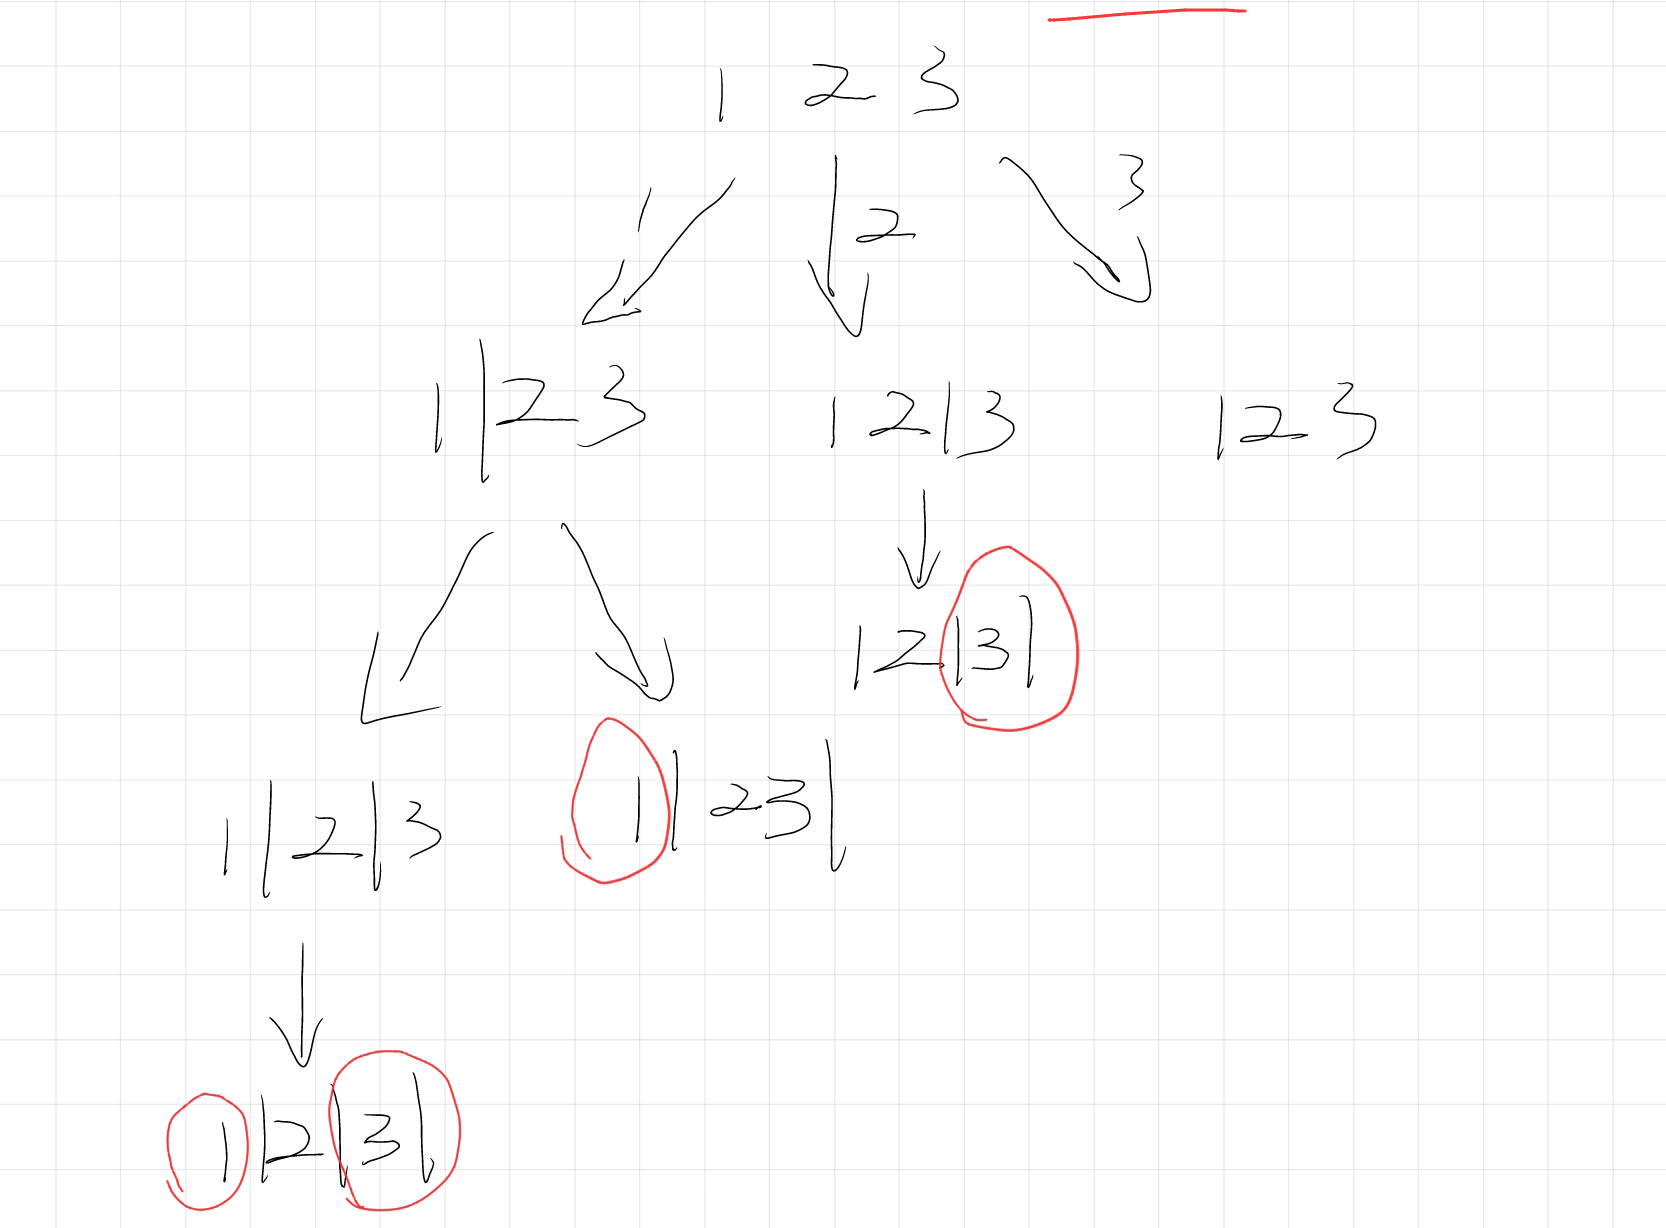 1 2 3
1 2 3
1|23 12|3 123
12|3|
1|2|3 1|23|
1|2|3|